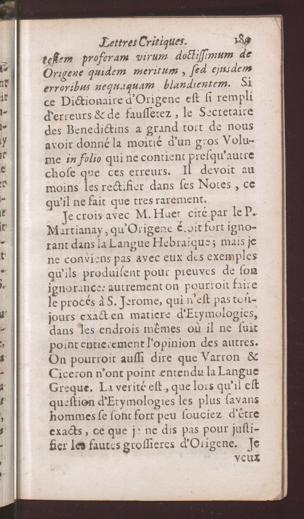 Lettres Critiques. 189
testem proferam virum doctissimum de
Origene quidem meritum, sed ejusdem
erroribus nequaquam blandientem. Si
ce Dictionaire d'Origene est si rempli
d'erreurs & de faussetez, le Secretaire
des Benedictins a grand tort de nous
avoir donné la moitié d'un gros Volu-
me in folio qui ne contient presqu'autre
chose que ces erreurs. Il devoit au
moins les rectifier dans ses Notes, ce
qu'il ne fait que tres rarement.
Je crois avec M. Huet cité par le P.
Martianay, qu'Origene étoit fort igno-
rant dans la Langue Hebraïque; mais je
ne conviens pas avec eux des exemples
qu'ils produisent pour preuves de son
ignorance: autrement on pourroit faire
le procés à S. Jerome, qui n'est pas toû-
jours exact en matiere d'Etymologies,
dans les endrois mêmes où il ne suit
point entierement l'opinion des autres.
On pourroit aussi dire que Varron &
Ciceron n'ont point entendu la Langue
Greque. La verité est, que lors qu'il est
question d'Etymologies les plus savans
hommes se sont fort peu souciez d'être
exacts, ce que je ne dis pas pour justi-
fier les fautes grossieres d'Origene. Je
veux